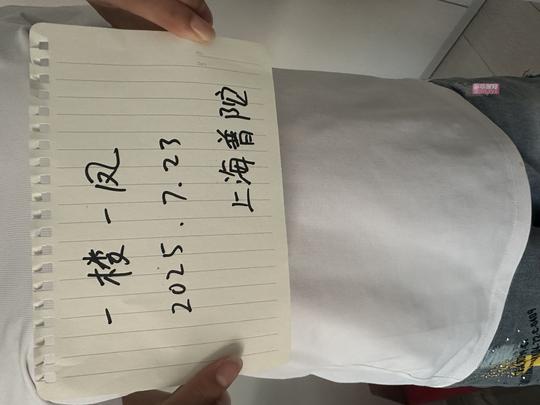 一楼一凤
2025.7.23
上海普陀